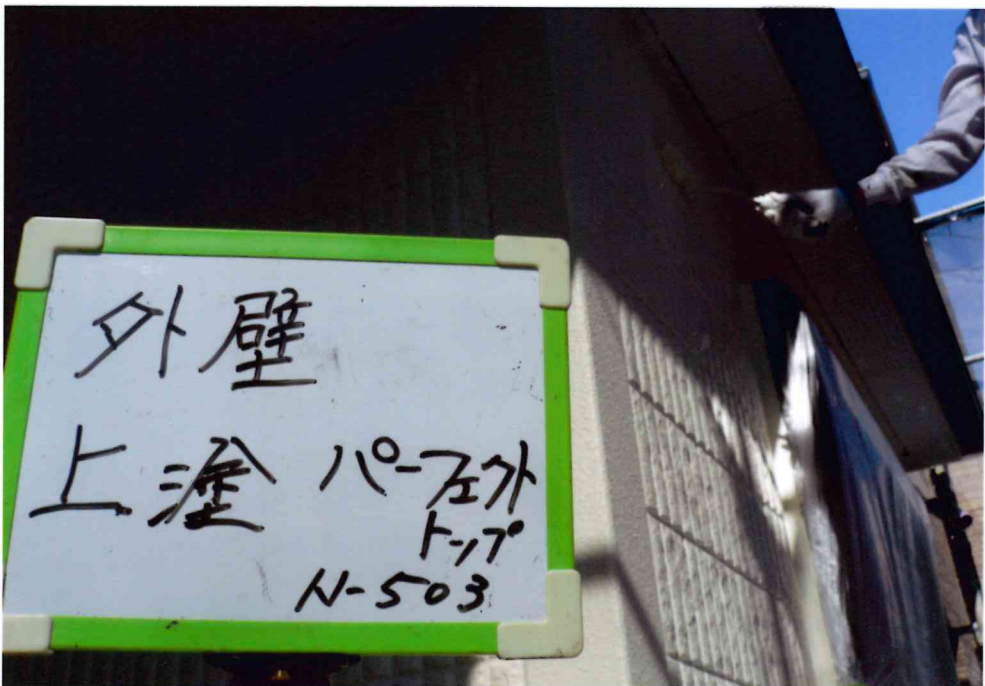 外壁
上塗 パーフェクト
トップ
N-503